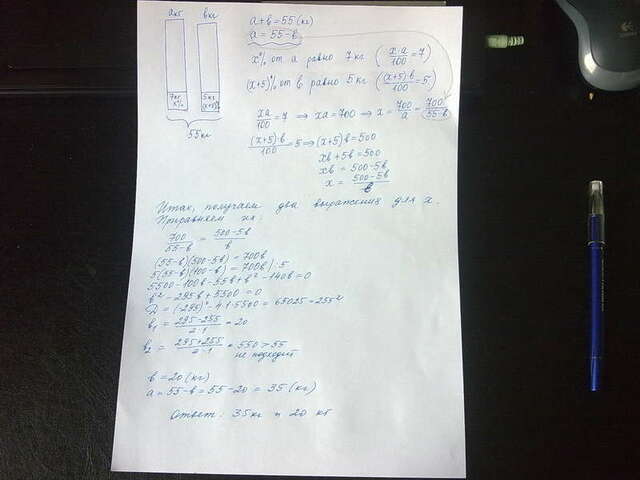 a кг
в кг
7 кг
x%
5 кг
(x+5)%
55 кг
a+в=55 (кг)
a = 55-в
x% от a равно 7 кг (x·a/100 = 7)
(x+5)% от в равно 5 кг ((x+5)·в/100 = 5)
xa/100 = 7 ⇒ xa = 700 ⇒ x = 700/a = 700/(55-в)
(x+5)·в/100 = 5 ⇒ (x+5)в = 500
xв + 5в = 500
xв = 500-5в
x = (500-5в)/в
Итак, получаем два выражения для x.
Приравняем их:
700/(55-в) = (500-5в)/в
(55-в)(500-5в) = 700в
5(55-в)(100-в) = 700в |:5
5500-100в-55в+в²-140в=0
в²-295в+5500=0
D = (-295)²-4·1·5500 = 65025 = 255²
в₁ = (295-255)/(2·1) = 20
в₂ = (295+255)/(2·1) = 550 > 55
не подходит
в = 20 (кг)
a = 55-в = 55-20 = 35 (кг)
Ответ: 35 кг и 20 кг